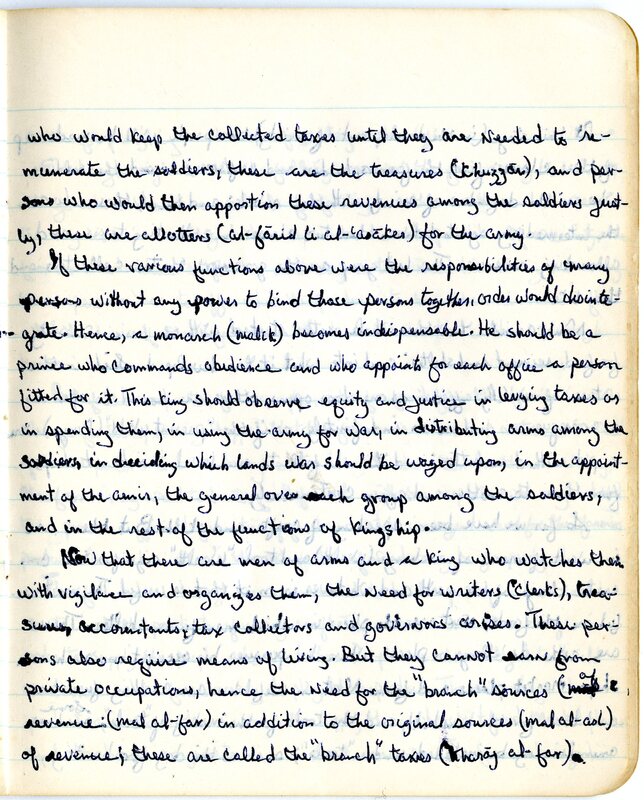 who would keep the collected taxes until they are needed to re-
munerate the soldiers, these are the treasures (Khuzzān), and per-
sons who would then apportion these revenues among the soldiers just-
ly, these are allotters (al-fārid li al-'asākes) for the army.
If these various functions above were the responsibilities of many
persons without any power to bind those persons together, order would disinte-
grate. Hence, a monarch (malik) becomes indispensable. He should be a
prince who commands obedience and who appoints for each office a person
fitted for it. This king should observe equity and justice in levying taxes as
in spending them, in using the army for war, in distributing arms among the
soldiers, in deciding which lands war should be waged upon, in the appoint-
ment of the amir, the general over each group among the soldiers,
and in the rest of the functions of kingship.
Now that there are men of arms and a king who watches them
with vigilance and organizes them, the need for writers (clerks), trea-
surers, accountants, tax collectors and governors arises. These per-
sons also require means of living. But they cannot earn from
private occupations, hence the need for the "branch" sources of
revenue (mal al-far) in addition to the original sources (mal al-asl)
of revenue; these are called the "branch" taxes (kharāj al-far).